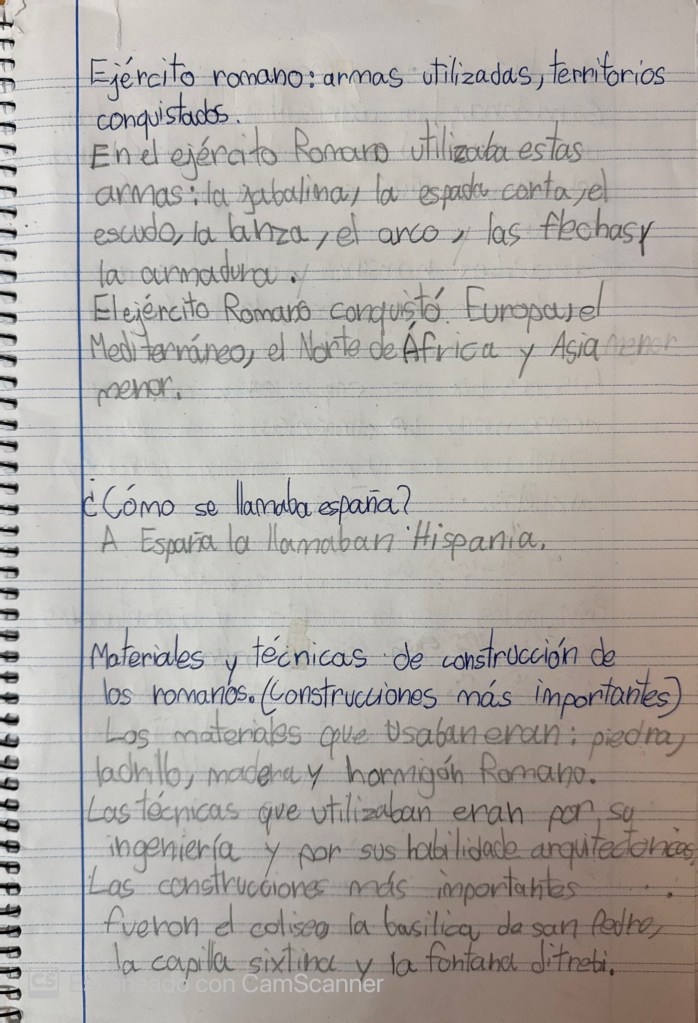 Ejército romano: armas utilizadas, territorios
conquistados.
En el ejército Romano utilizaba estas
armas: la jabalina, la espada corta, el
escudo, la lanza, el arco, las flechas y
la armadura.
El ejército Romano conquistó Europa, el
Mediterráneo, el Norte de África y Asia menor
menor.
¿Cómo se llamaba españa?
A España la llamaban Hispania.
Materiales y técnicas de construcción de
los romanos. (Construcciones más importantes)
Los materiales que usaban eran: piedra,
ladrillo, madera y hormigón Romano.
Las técnicas que utilizaban eran por su
ingeniería y por sus habilidade arquitectonicas.
Las construcciones más importantes
fueron el coliseo la basilica de san Pedro,
la capilla sixtina y la fontana ditrebi.
CS Escaneado con CamScanner